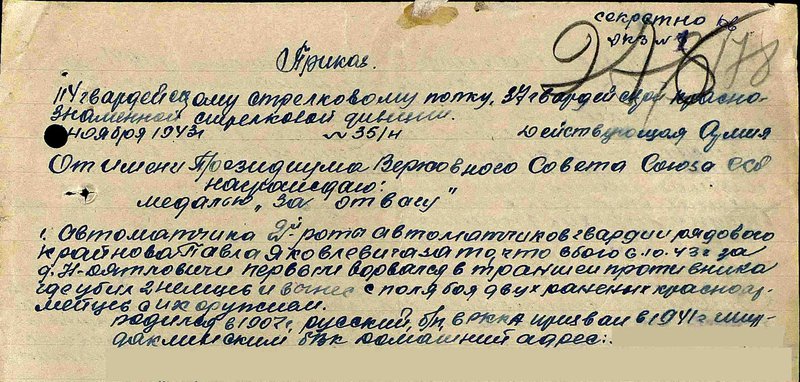 секретно
экз №1
Приказ.
114 гвардейскому стрелковому полку, 37 гвардейской красно-
знаменной стрелковой дивизии.
ноября 1943г №35/н Действующая Армия
От имени Президиума Верховного Совета Союза ССР
награждаю:
медалью „За отвагу"
1. Автоматчика 2й рота автоматчиков гвардии рядового
Крайнова Павла Яковлевича за то что в бою 6.10.43г за
д. Н-Дятловичи первым ворвался в траншеи противника
где убил 2 немцев и вынес с поля боя двух раненых красноар-
мейцев с их оружием.
родился в 1907г, русский, б/п, в РККА призван в 1941г
РВК домашний адрес:.